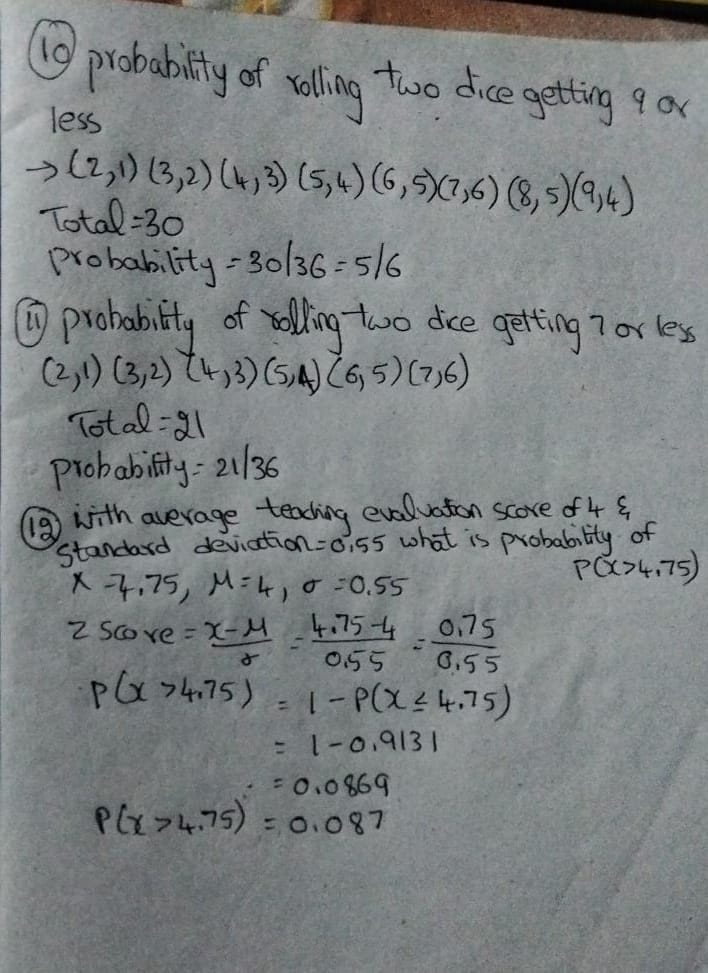 10 probability of rolling two dice getting 9 or
less
→ (2,1) (3,2) (4,3) (5,4) (6,5)(7,6) (8,5)(9,4)
Total=30
probability = 30/36 = 5/6
11 probability of rolling two dice getting 7 or less
(2,1) (3,2) (4,3) (5,4) (6,5) (7,6)
Total=21
probability = 21/36
12 with average teaching evaluation score of 4 &
standard deviation=0.55 what is probability of
P(x>4.75)
x = 4.75, M=4, σ =0.55
z score = x-M/σ = 4.75-4/0.55 = 0.75/0.55
P(x >4.75) = 1-P(x ≤ 4.75)
= 1-0.9131
= 0.0869
P(x >4.75) = 0.087